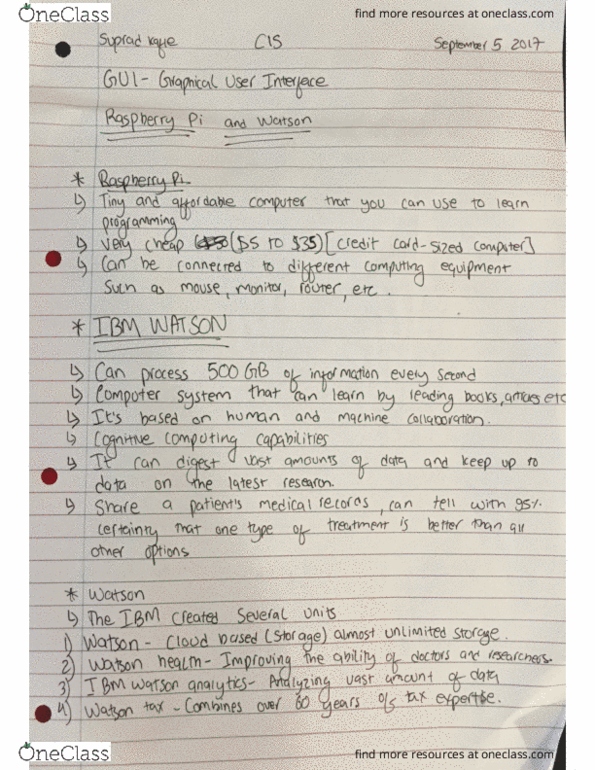 OneClass find more resources at oneclass.com
CIS September 5 2017
GUI- Graphical User Interface
Raspberry Pi and Watson
* Raspberry Pi
↳ Tiny and affordable computer that you can use to learn
programming
↳ Very cheap ($5 to $35) [credit card-sized computer]
↳ Can be connected to different computing equipment
such as mouse, monitor, router, etc.
* IBM WATSON
↳ Can process 500 GB of information every second
↳ Computer system that can learn by reading books, articles etc
↳ It's based on human and machine collaboration.
↳ Cognitive computing capabilities
↳ It can digest vast amounts of data and keep up to
data on the latest research.
↳ Share a patient's medical records, can tell with 95%
certainty that one type of treatment is better than all
other options
* Watson
↳ The IBM created several units
1) Watson - Cloud based (storage) almost unlimited storage.
2) Watson health- Improving the ability of doctors and researchers.
3) IBM Watson analytics- Analyzing vast amount of data
4) Watson tax - Combines over 60 years of tax expertise.
OneClass find more resources at oneclass.com